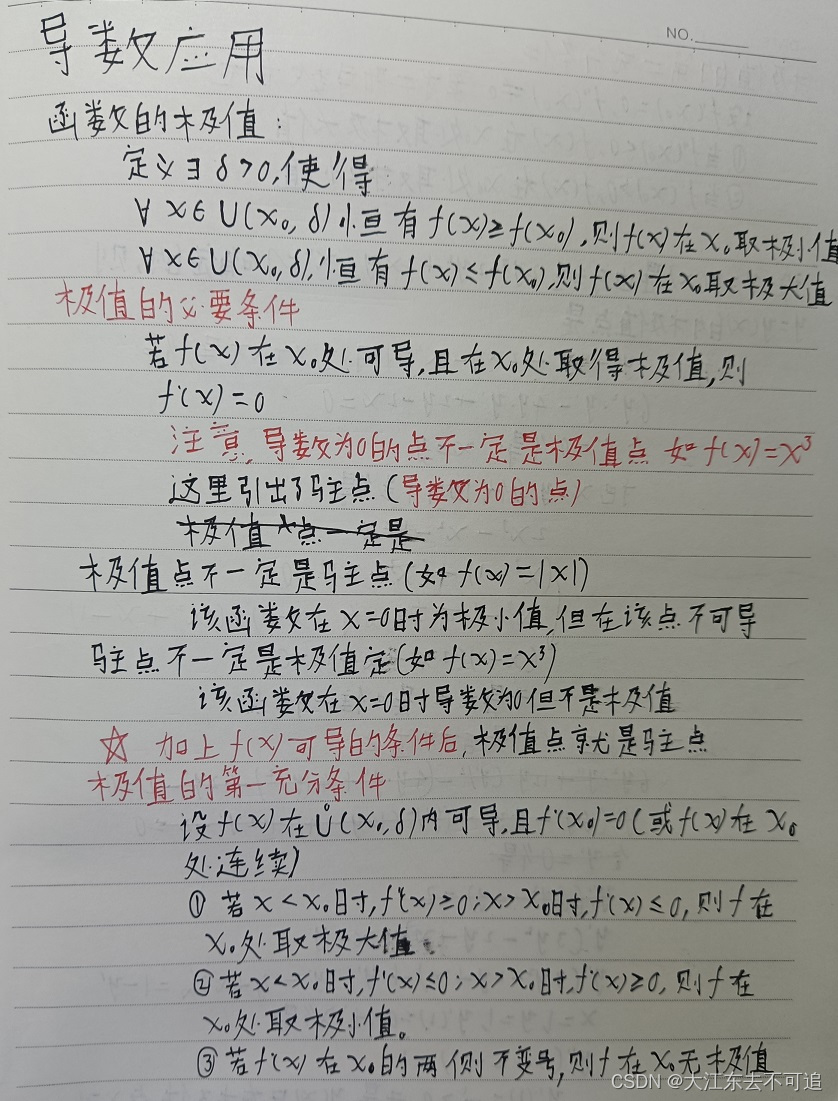 NO.
导数应用
函数的极值:
定义∃δ>0,使得
∀x∈U(x₀,δ)恒有f(x)≥f(x₀),则f(x)在x₀取极小值
∀x∈U(x₀,δ),恒有f(x)≤f(x₀),则f(x)在x₀取极大值
极值的必要条件
若f(x)在x₀处可导,且在x₀处取得极值,则
f'(x)=0
注意,导数为0的点不一定是极值点 如f(x)=x³
这里引出了驻点(导数为0的点)
极值点一定是
极值点不一定是驻点(如f(x)=|x|)
该函数在x=0时为极小值,但在该点不可导
驻点不一定是极值定(如f(x)=x³)
该函数在x=0时导数为0但不是极值
☆ 加上f(x)可导的条件后,极值点就是驻点
极值的第一充分条件
设f(x)在Ů(x₀,δ)内可导,且f'(x₀)=0(或f(x)在x₀
处连续)
①若x<x₀时,f'(x)≥0;x>x₀时,f'(x)≤0,则f在
x₀处取极大值。
②若x<x₀时,f'(x)≤0;x>x₀时,f'(x)≥0,则f在
x₀处取极小值。
③若f'(x)在x₀的两侧不变号,则f在x₀无极值
CSDN @大江东去不可追